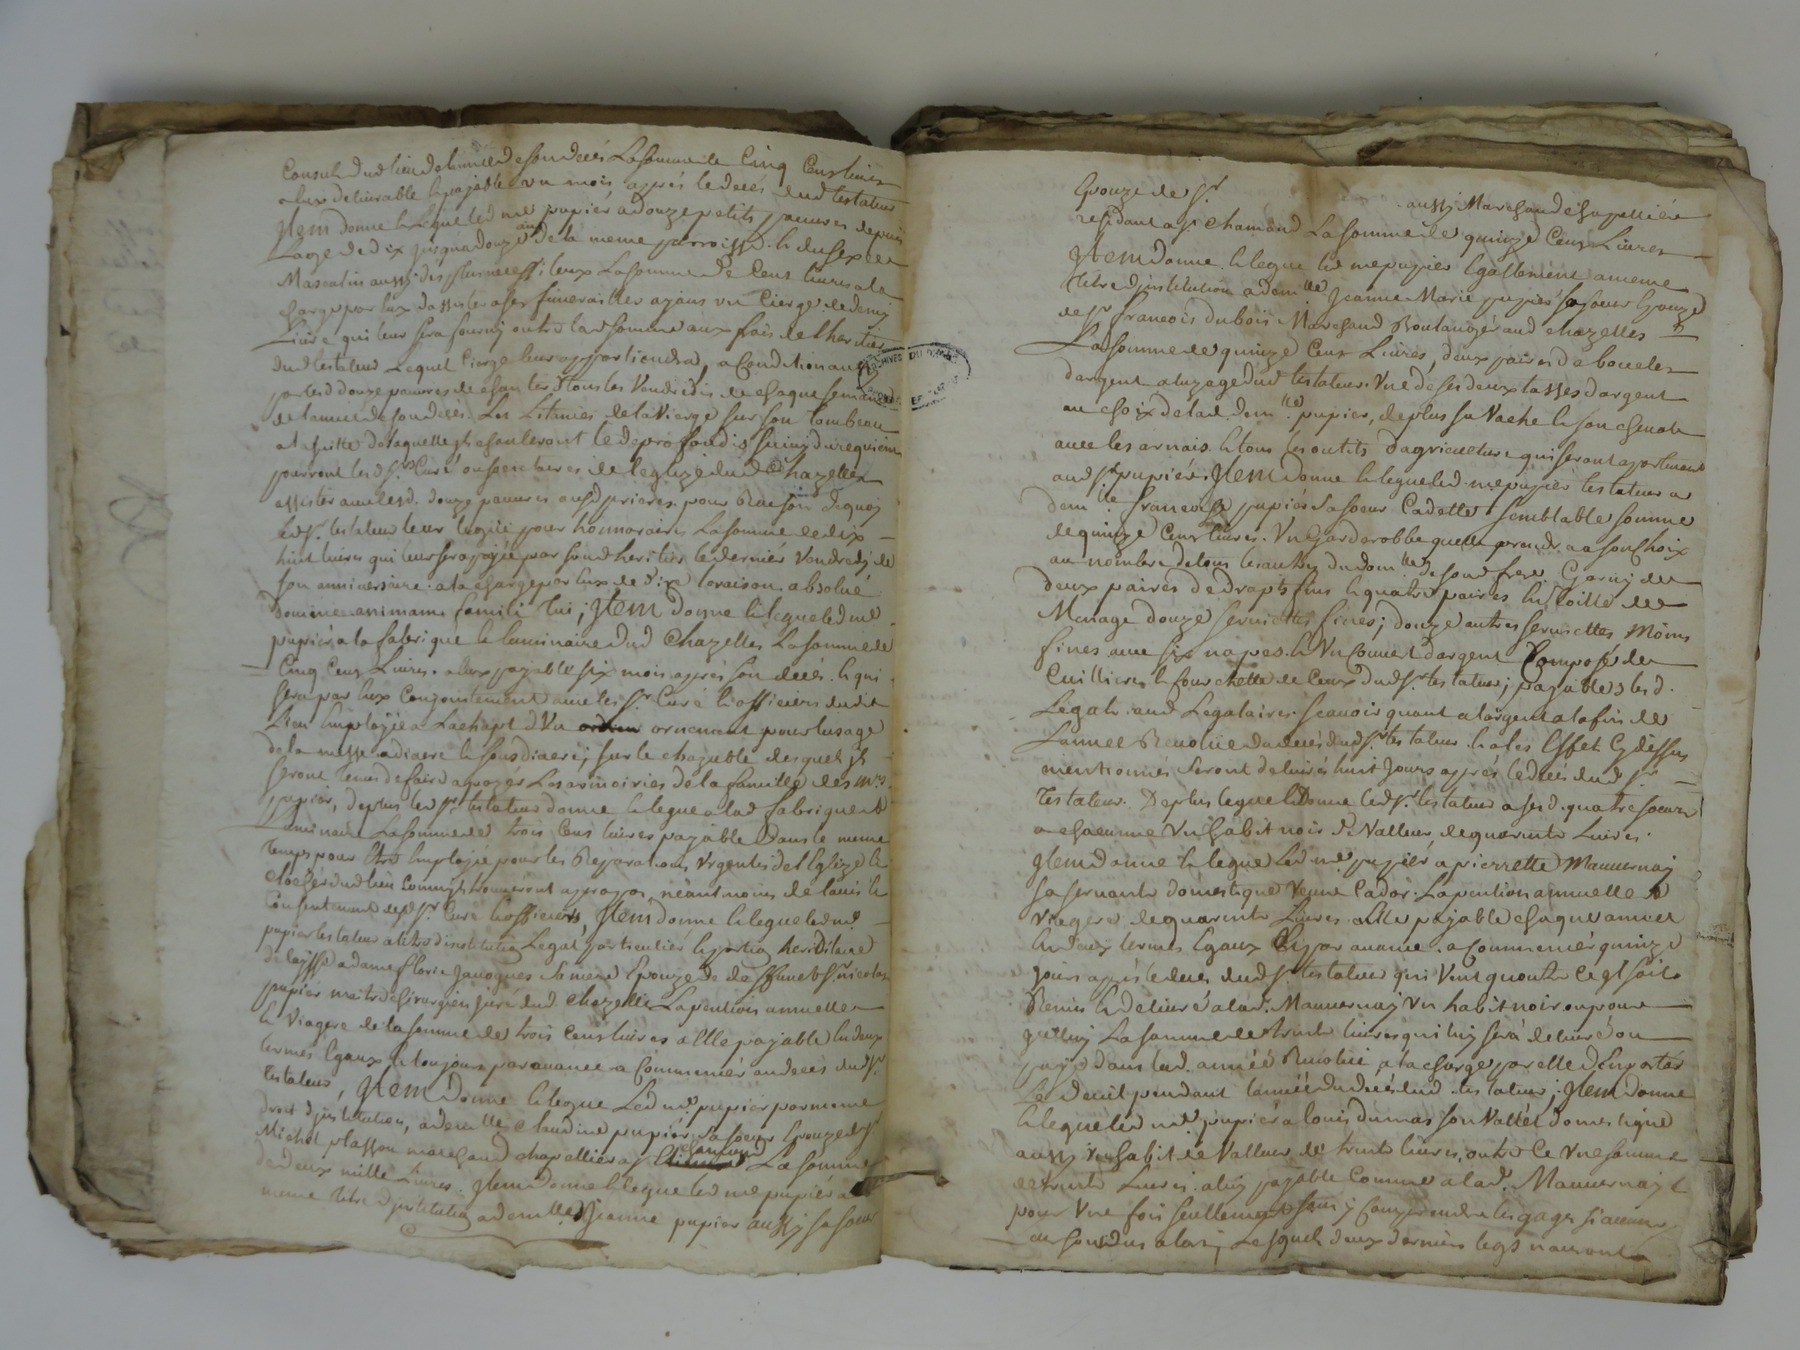 Consuls dud lieu de l'année de son decés La somme de Cinq Cens livres
a lux delivrable & payable un mois apprés le decés dud testateur
Jtem donne & legue led me pupier a douze petits pauvres depuis
Lage de dix jusqua douze ans de la meme parroisse & du sexe
Masculin aussi des plus necessiteux La somme de Cens livres a la
charge par lux dassister a ses funerailles ayans un Cierge de demy
Livre qui leur sera fourny outre lad somme aux frais de lheritier
dud testateur Lequel Cierge leur appartiendra, a Condition aussy
par lesd douze pauvres de chanter tous les Vendredis de chaque semaine
de lannée de son deces Les Litanies de la Vierge sur son Tombeau
et suitte desquelles ils chanteront le de profondis suivy du requiem
pourront lesd Srs Curé ou secretaires de leglize dud Chazelles
assister avec lesd. douze pauvres ausd prieres pour Raison dequoy
led Sr testateur leur legue pour honnoraires La somme de dix
huit livres qui leur sera payée par sond heritier le dernier Vendredy de
son anniversaire a la charge par lux de dire loraison absolve
domine animam famuli tui; Jtem donne & legue led me
pupier a la fabrique & luminaire dud Chazelles La somme de
Cinq Cens Livres a lux payable six mois apprés son decés & qui
sera par lux Conjointement avec les Sr Curé & officiers dudit
Lieu Employée a Lachapt d'Un ornement pour lusage
de la messe adiacre & sousdiacre; sur le chazuble desquels ils
seront tenus de faire apozer Les armoiries de la famille des mrs
pupier, de plus led Sr testateur donne & legue a lad fabrique &
Luminaire La somme de trois Cens livres payable Dans le meme
temps pour Etre Employée pour les Repparations Urgentes de l'Eglize &
clocher dud lieu Comm' ils trouveront appropos, neantmoins de lavis &
Consentement desd Sr Curé & officiers, Jtem donne & legue led me
pupier testateur a titre d'institution Legat particulier & portion hereditaire
delaissé a dame florie Jacoques sa mere Epouze de deffunt Sr nicolas
pupier maitre chirurgien juré dud chazelles La pention annuelle
& Viagere de la somme de trois Cens livres a Elle payable En deux
termes Egaux & toujours par avance a Commencer au decés dud Sr
Testateur, Jtem Donne & legue Led me pupier par meme
droit d'institution, a demlle Claudine pupier sa soeur Epouze de Sr
Michel plasson marchand chapellier a St chamond La somme
de deux mille Livres. Jtem Donne & legue led me pupier a
meme titre d'institution a demlle Jeanne pupier aussy sa soeur
Epouze de Sr aussy Marchand chapellier
residant a St chamond La somme de quinze Cens Livres
Jtem donne & legue led me pupier Egallement a meme
titre d'institution a demlle Jeanne Marie pupier sa soeur Epouze
de Sr francois dubois Marchand Boulanger aud chazelles
La somme de quinze Cens Livres, deux paires de boucles
dargent a luzage dud testateur Une de ses deux tasses dargent
au choix de lad demlle pupier, de plus sa Vache & son cheval
avec les arnais & tous les outils dagriculture qui seront apartenant
aud Sr pupier. Jtem Donne & legue led me pupier testateur a
demlle francoise pupier sa soeur Cadette semblable somme
de quinze Cens livres. Un Garderobbe quelle prendra a son Choix
au nombre de tous les autres du dom lle de sond frere Garny de
deux paires de draps fins & quatre paires En toille de
Menage douze serviettes fines; douze autres serviettes Moins
fines avec six napes & Un Couvert dargent Composé de
Cuilliere & fourchette de Ceux dud Sr testateur; payables lesd.
Legats aud Legataires scavoir quant a largent a la fin de
lannée Revolüe du decés dud Sr testateur & a les Effets Cy dessus
mentionnés seront delivrés huit Jours apprés le decés dud Sr
Testateur. De plus legue & Donne led Sr testateur a sesd. quatre soeurs
a chacune Un habit noir de Valleur de quarante Livres.
Jtem donne & legue Led me pupier a pierrette Mauvernay
sa servante domestique Veuve Cador. La pention annuelle &
Viagere de quarante Livres a Elle payable chaque année
En deux termes Egaux & par avance a Commencer quinze
jours apprés le deces dud Sr testateur qui Veut quoutre Ce il soit
Remis & delivré a lad. Mauvernay Un habit noir ou pour
Jceluy La somme de trente livres qui luy sera delivré ou
payé dans lad. année Revolüe a la charge par elle d'Emporter
Le deuil pendant lannée du decés dud testateur; Jtem donne
& legue led me pupier a louis dumas son Vallet domestique
aussy Un habit de Valleur de trente livres, outre Ce Une somme
de trente Livres a luy payable Comme a lad. Mauvernay &
pour Une fois seullement sans y Comprendre les gages si aucuns
en sont dus alors, Lesquels deux derniers legs nauront